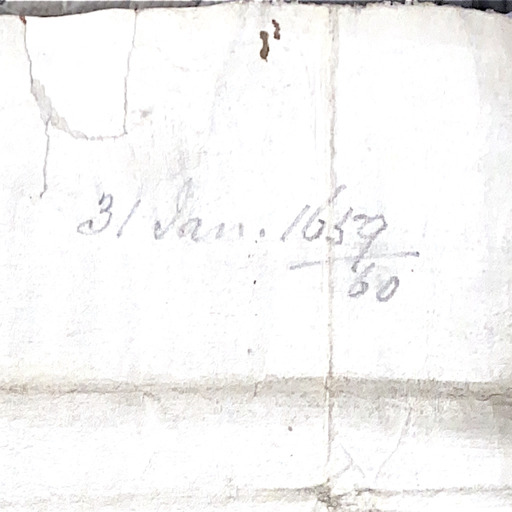 31 Jan. 1659
60